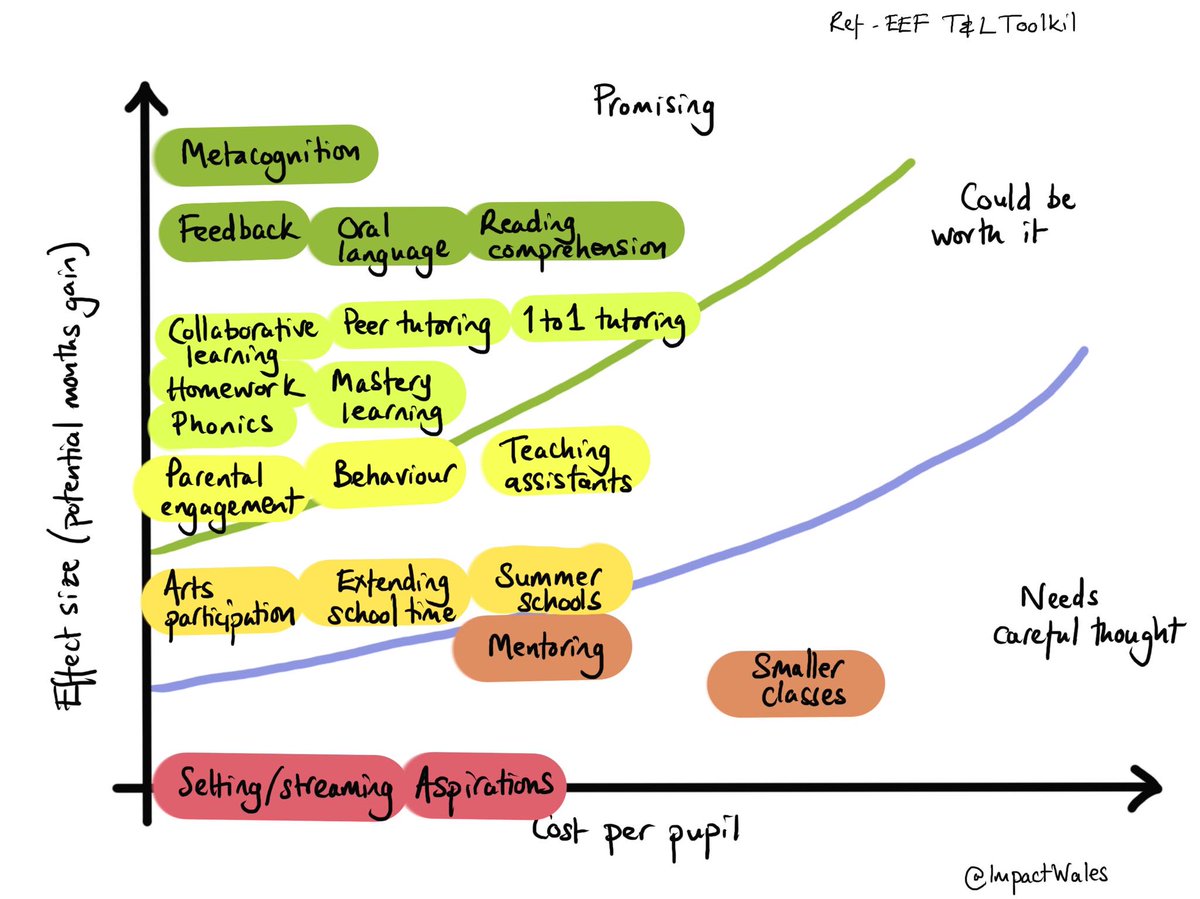 Ref - EEF T&L Toolkit
Promising
Could be
worth it
Needs
careful thought
Effect size (potential months gain)
Metacognition
Feedback
Oral
language
Reading
comprehension
Collaborative
learning
Peer tutoring
1 to 1 tutoring
Homework
Mastery
learning
Phonics
Parental
engagement
Behaviour
Teaching
assistants
Arts
participation
Extending
school time
Summer
schools
Mentoring
Smaller
classes
Setting/streaming
Aspirations
Cost per pupil
@ImpactWales